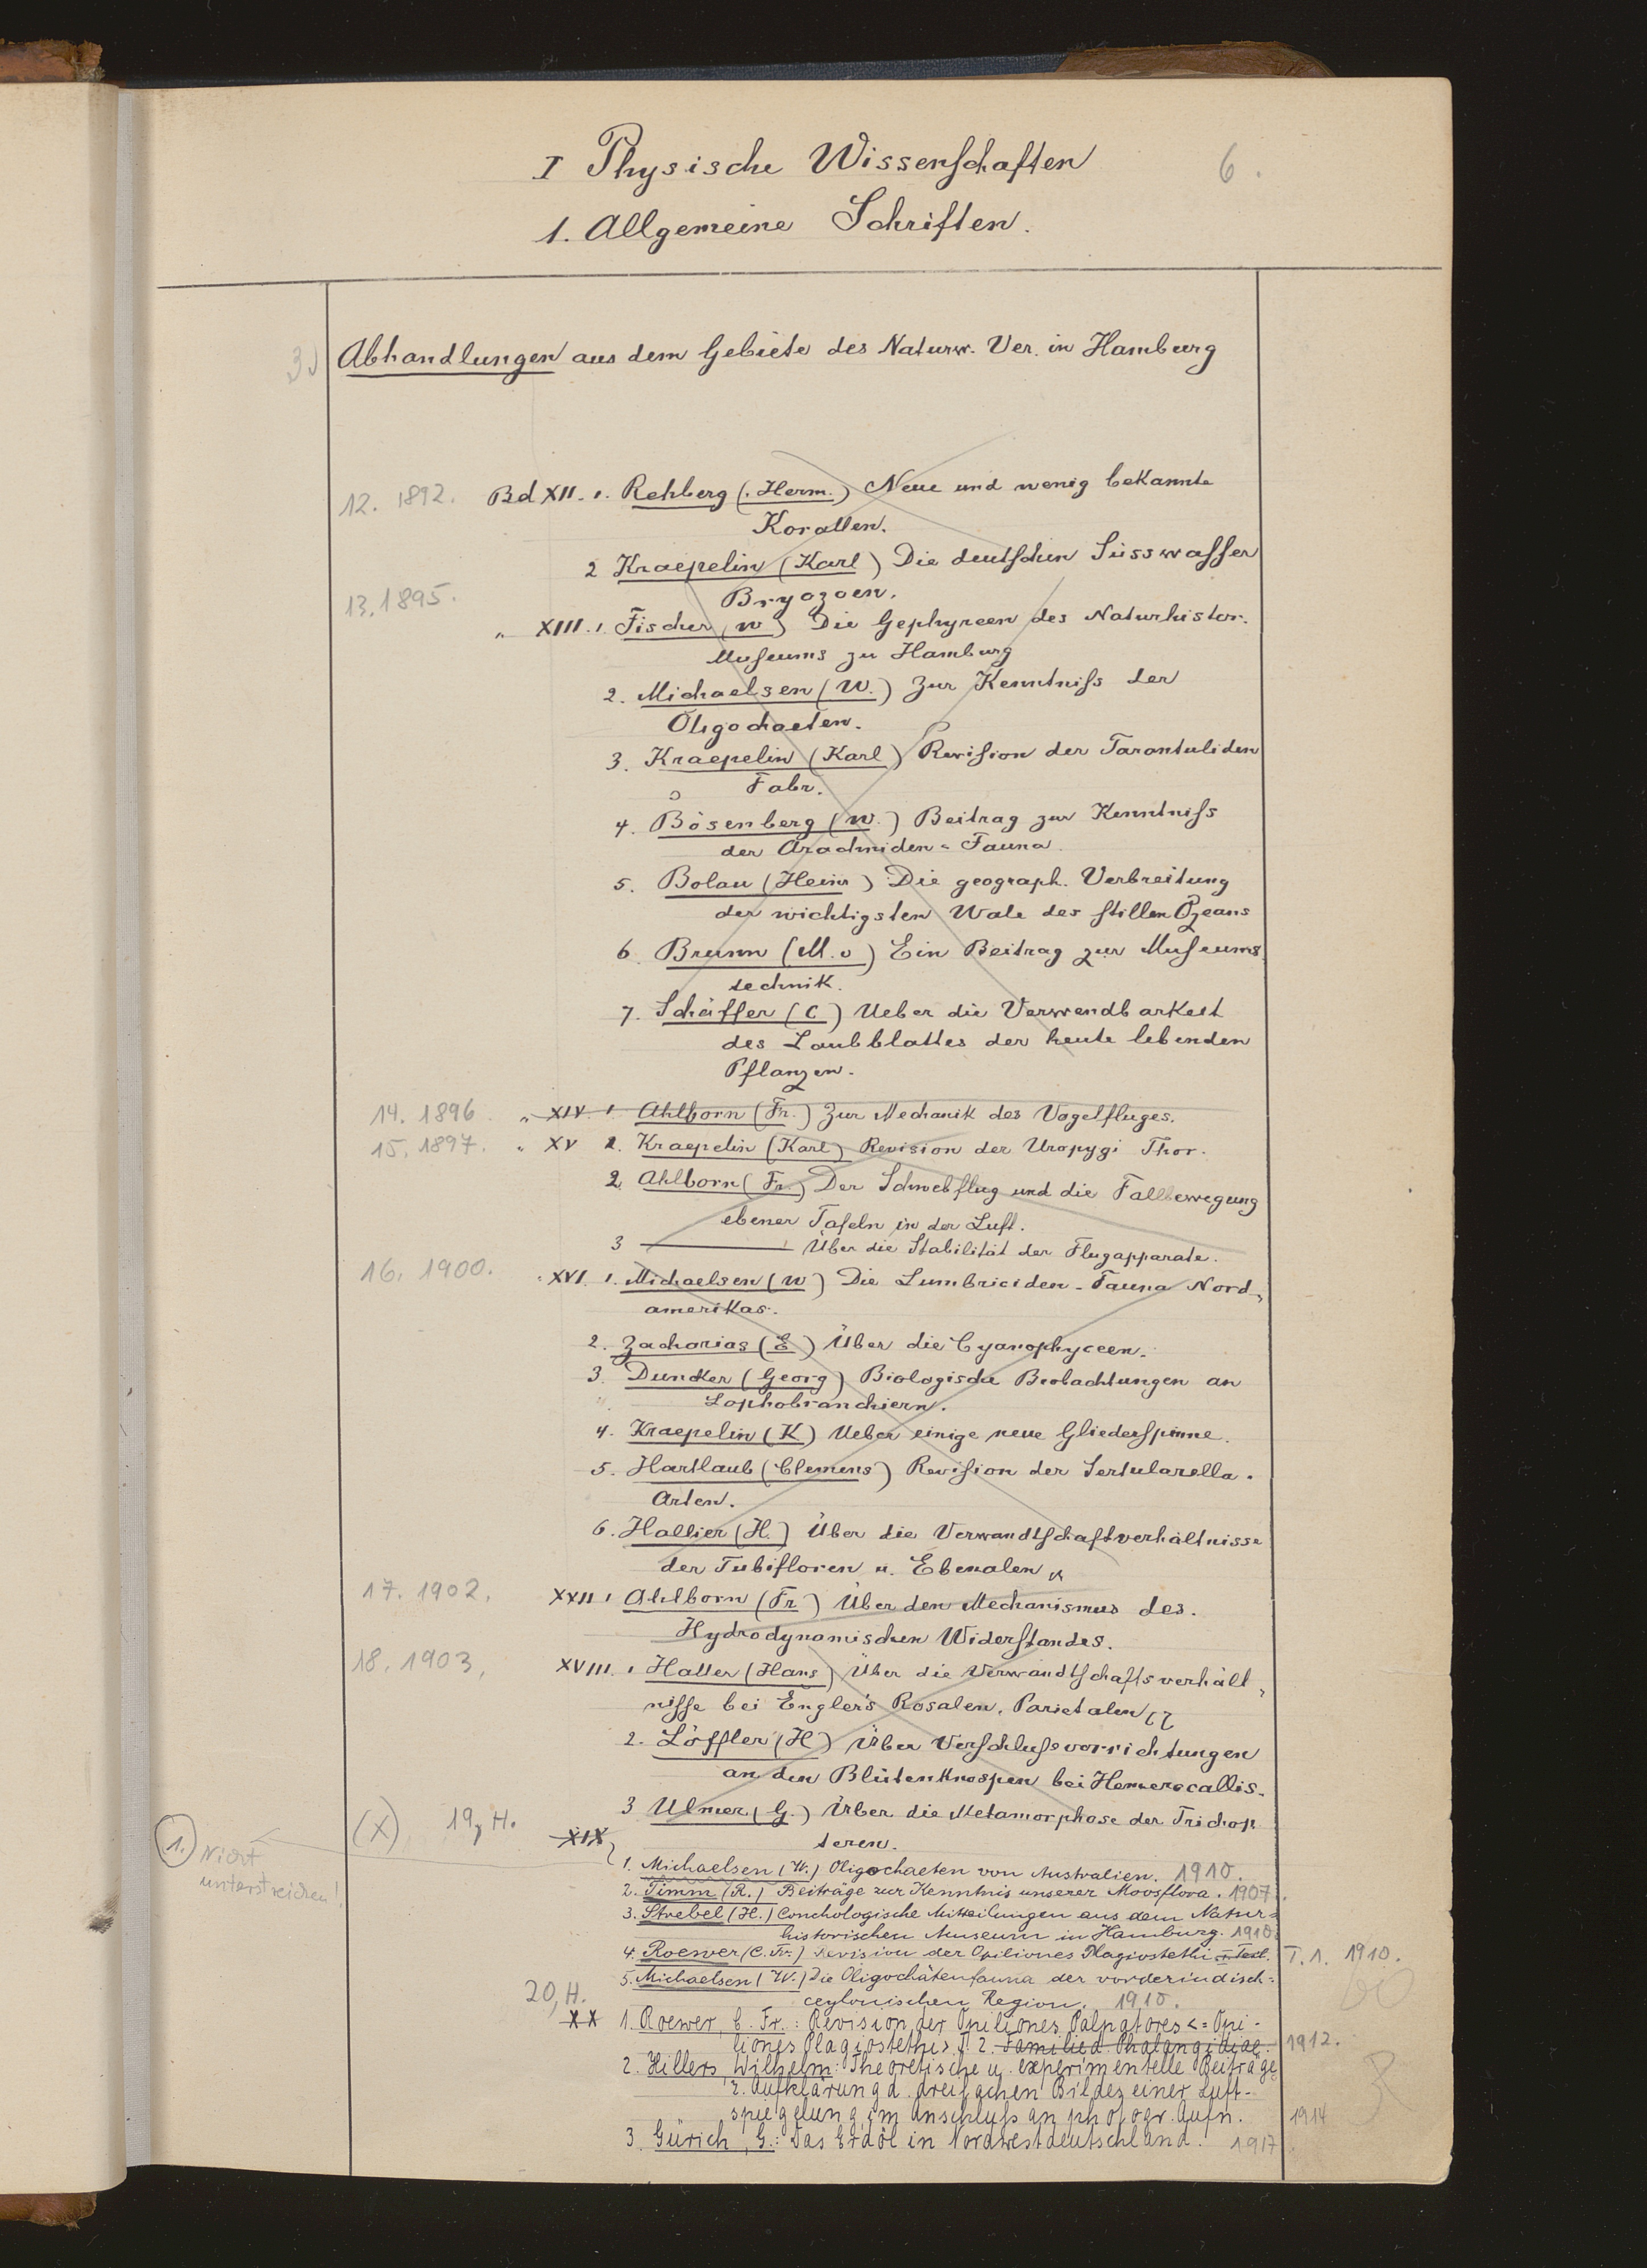 I Physische Wissenschaften
6.
1. Allgemeine Schriften.
3) Abhandlungen aus dem Gebiete des Naturw. Ver. in Hamburg
12. 1892. Bd XII. 1. Rehberg (Herm.) Neue und wenig bekannte
Korallen.
2 Kraepelin (Karl) Die deutschen Süsswasser
Bryozoen.
13. 1895.
" XIII. 1. Fischer (W) Die Gephyreen des Naturhistor.
Museums zu Hamburg
2. Michaelsen (W.) Zur Kenntniss der
Oligochaeten.
3. Kraepelin (Karl) Revision der Tarantuliden
Fabr.
4. Bösenberg (W.) Beitrag zur Kenntniss
der Arachniden-Fauna.
5. Bolau (Heinr) Die geograph. Verbreitung
der wichtigsten Wale des stillen Ozeans
6. Brunn (M. v) Ein Beitrag zur Museums
technik.
7. Schäffer (C) Ueber die Verwendbarkeit
des Laubblattes der heute lebenden
Pflanzen.
14. 1896. " XIV. 1 Ahlborn (Fr.) Zur Mechanik des Vogelfluges.
15. 1897. " XV 1. Kraepelin (Karl) Revision der Uropygi Thor.
2. Ahlborn (Fr.) Der Schwebflug und die Fallbewegung
ebener Tafeln in der Luft.
3 — Über die Stabilität der Flugapparate.
16. 1900. " XVI. 1. Michaelsen (W) Die Lumbriciden-Fauna Nord-
amerikas.
2. Zacharias (E) Über die Cyanophyceen.
3. Duncker (Georg) Biologische Beobachtungen an
Lophobranchiern.
4. Kraepelin (K) Ueber einige neue Gliederspinne.
5. Hartlaub (Clemens) Revision der Sertularella-
Arten.
6. Hallier (H.) Über die Verwandtschaftverhältnisse
der Tubifloren u. Ebenalen
17. 1902. XVII 1 Ahlborn (Fr) Über den Mechanismus des.
Hydrodynamischen Widerstandes.
18. 1903. XVIII. 1 Haller (Hans) Über die Verwandtschaftsverhält-
nisse bei Engler's Rosalen, Parietalen
2. Löffler (H) Über Verschlussvorrichtungen
an den Blütenknospen bei Hemerocallis.
3 Ulmer (G.) Über die Metamorphose der Trichop
teren.
(X) 19, H. XIX
1. Nicht
unterstreichen!
1. Michaelsen (W.) Oligochaeten von Australien. 1910.
2. Timm (R.) Beiträge zur Kenntnis unserer Moosflora. 1907.
3. Strebel (H.) Conchologische Mitteilungen aus dem Natur-
historischen Museum in Hamburg. 1910.
4. Roewer (C. Fr.) Revision der Opiliones Plagiostethi T. 1. 1910.
5. Michaelsen (W.) Die Oligochätenfauna der vorderindisch-
ceylonischen Region. 1910.
20, H.
XX 1. Roewer, C. Fr.: Revision der Opiliones Palpatores <= Opi-
liones Plagiostethi> T. 2. Familie d. Phalangidiae. 1912.
2. Hillers, Wilhelm: Theoretische u. experimentelle Beiträge
z. Aufklärung d. dreifachen Bildes einer Luft-
spiegelung im Anschluß an photogr. Aufn. 1914
3. Gürich, G.: Das Erdöl in Nordwestdeutschland. 1917.